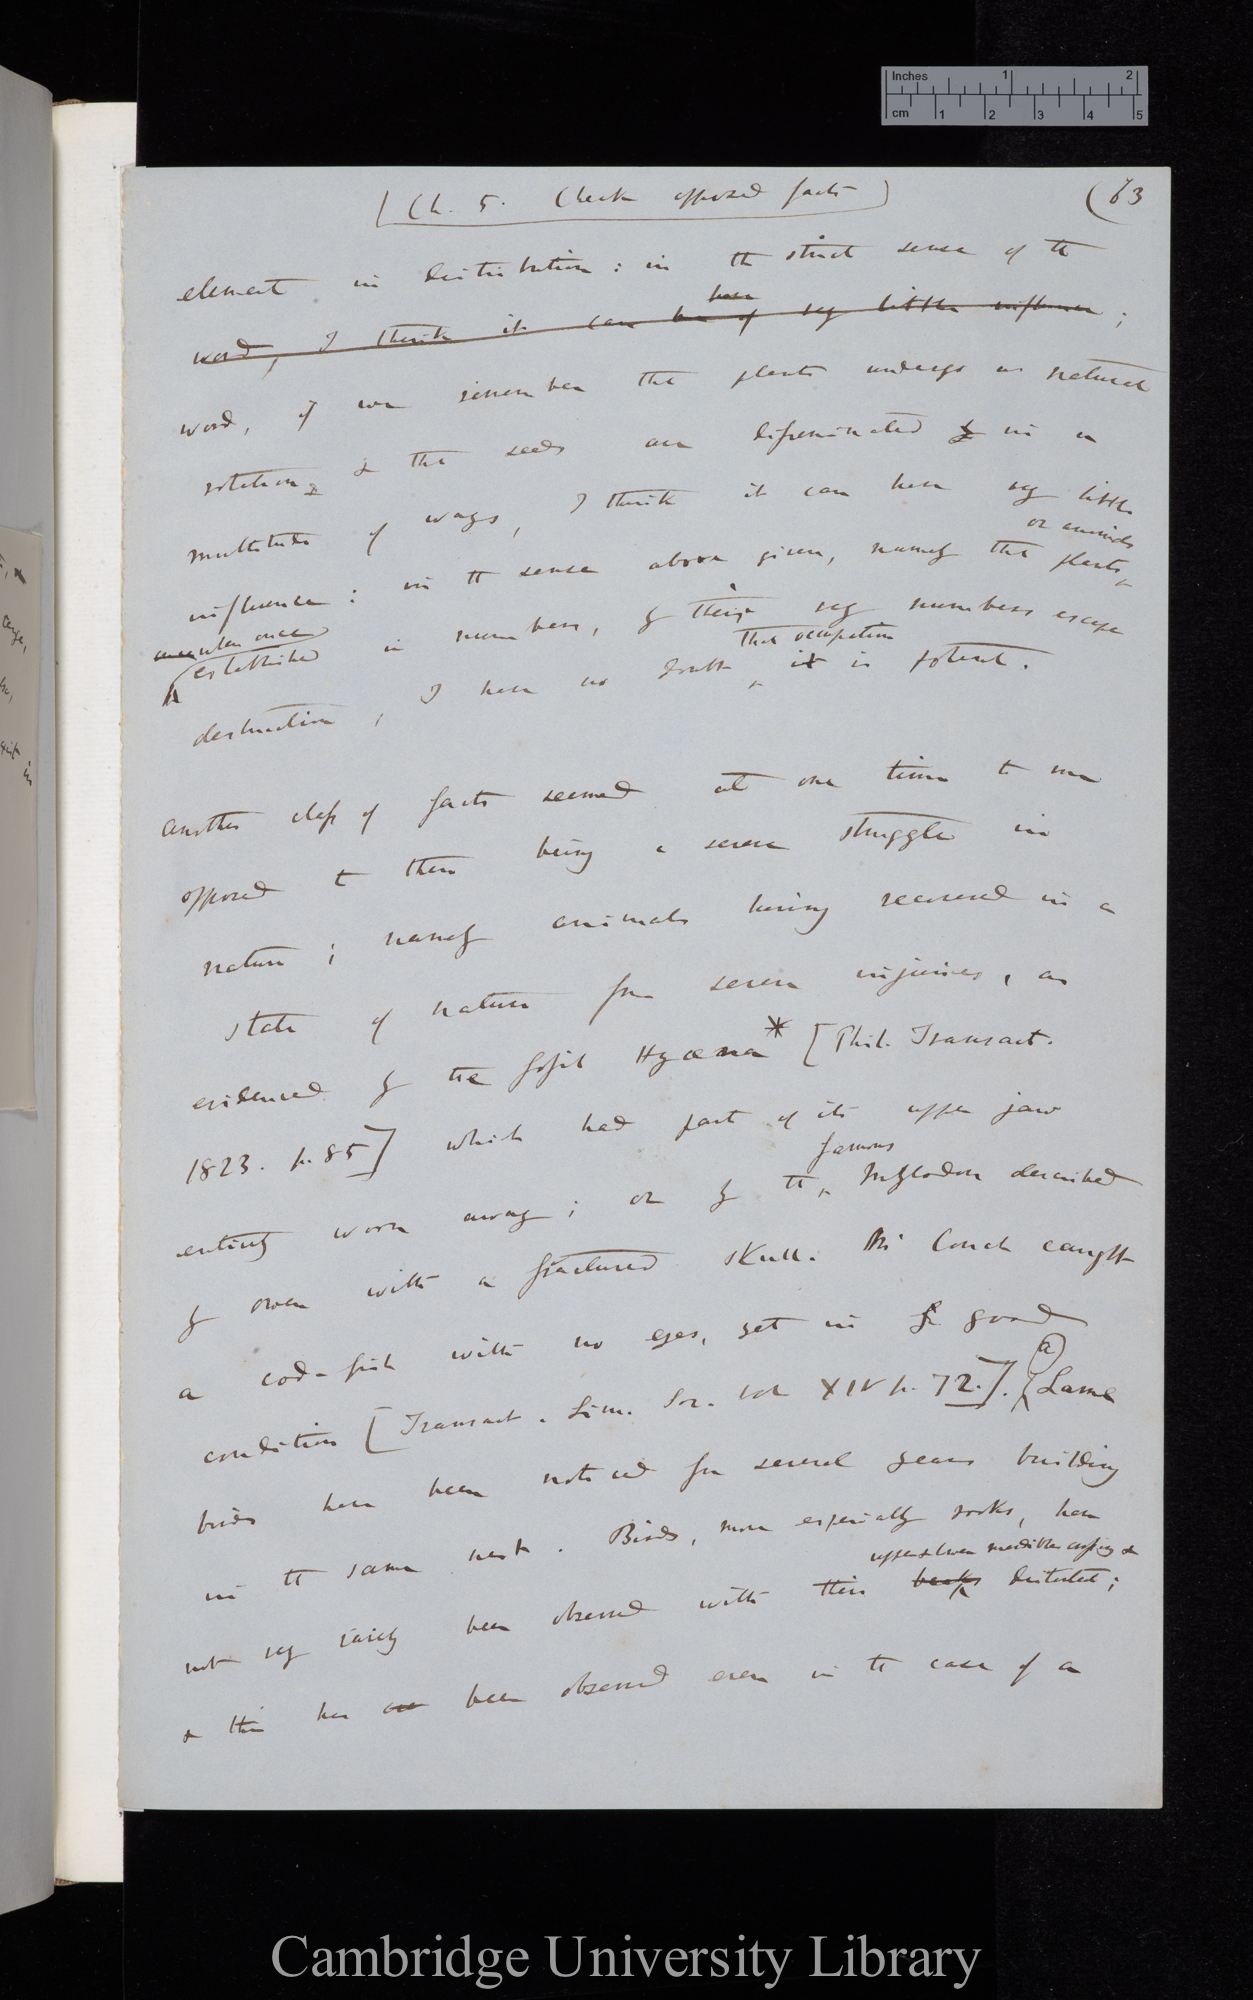 Inches 1 2
cm 1 2 3 4 5
[Ch. 5. Check opposed facts] (63
element in distribution: in the strict sense of the
have
word, I think it can be of very little influence;
word, if we remember that plants undergo no natural
rotation, & that seeds are disseminated in a
multitude of ways, I think it can have very little
or animals
influence: in the sense above given, namely that plants
when once
established in numbers, by their very numbers escape
that occupation
destruction, I have no doubt it is potent.
Another class of facts seemed at one time to me
opposed to there being a severe struggle in
nature; namely animals having recovered in a
state of nature from severe injuries, as
evidenced by the fossil Hyæna* [Phil. Transact.
1823. p. 85] which had part of its upper jaw
famous
entirely worn away; or by the Mylodon described
by Owen with a fractured skull. Mr Couch caught
a cod-fish with no eyes, yet in good
(a)
condition [Transact. Linn. Soc. vol XIV p. 72.]. Lame
birds have been noticed for several years building
in the same nest. Birds, more especially rooks, have
upper & lower mandibles crossing &
not very rarely been observed with their beaks distorted;
& this has been observed even in the case of a
Cambridge University Library